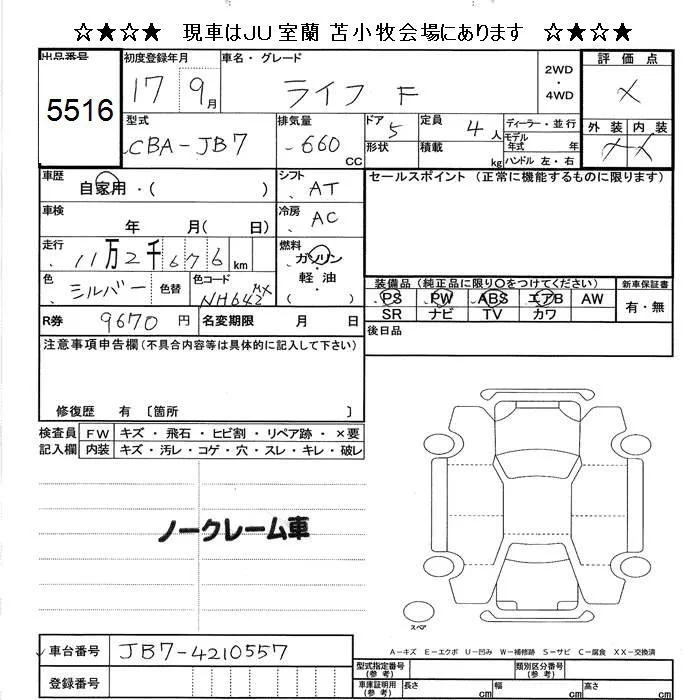 ☆★☆★ 現車はJU室蘭 苫小牧会場にあります ☆★☆★
出品番号 初度登録年月 車名・グレード 2WD・4WD 評価点
5516 17 9月 ライフ F X
型式 排気量 ドア 定員 ディーラー・並行 外装 内装
CBA-JB7 660 CC 5 4人 モデル年式 年 X X
形状 積載 kg ハンドル 左・右
車歴 自家用・( ) シフト AT セールスポイント (正常に機能するものに限ります)
車検 年 月( 日) 冷房 AC
走行 11万2千676km 燃料 ガソリン・軽油
色 シルバー 色替 色コード NH642MX
装備品 (純正品に限り○をつけてください) 新車保証書
PS PW ABS エアB AW 有・無
SR ナビ TV カワ
R券 9670円 名変期限 月 日 後日品
注意事項申告欄(不具合内容等は具体的に記入して下さい)
修復歴 有 〔箇所 〕
検査員 FW キズ・飛石・ヒビ割・リペア跡・×要
記入欄 内装 キズ・汚レ・コゲ・穴・スレ・キレ・破レ
ノークレーム車
スペア
A-キズ E-エクボ U-凹み W-補修跡 S-サビ C-腐食 XX-交換済
車台番号 JB7-4210557
型式指定番号(参考) 類別区分番号(参考)
登録番号 車庫証明用(参考) 長さ cm 幅 cm 高さ cm